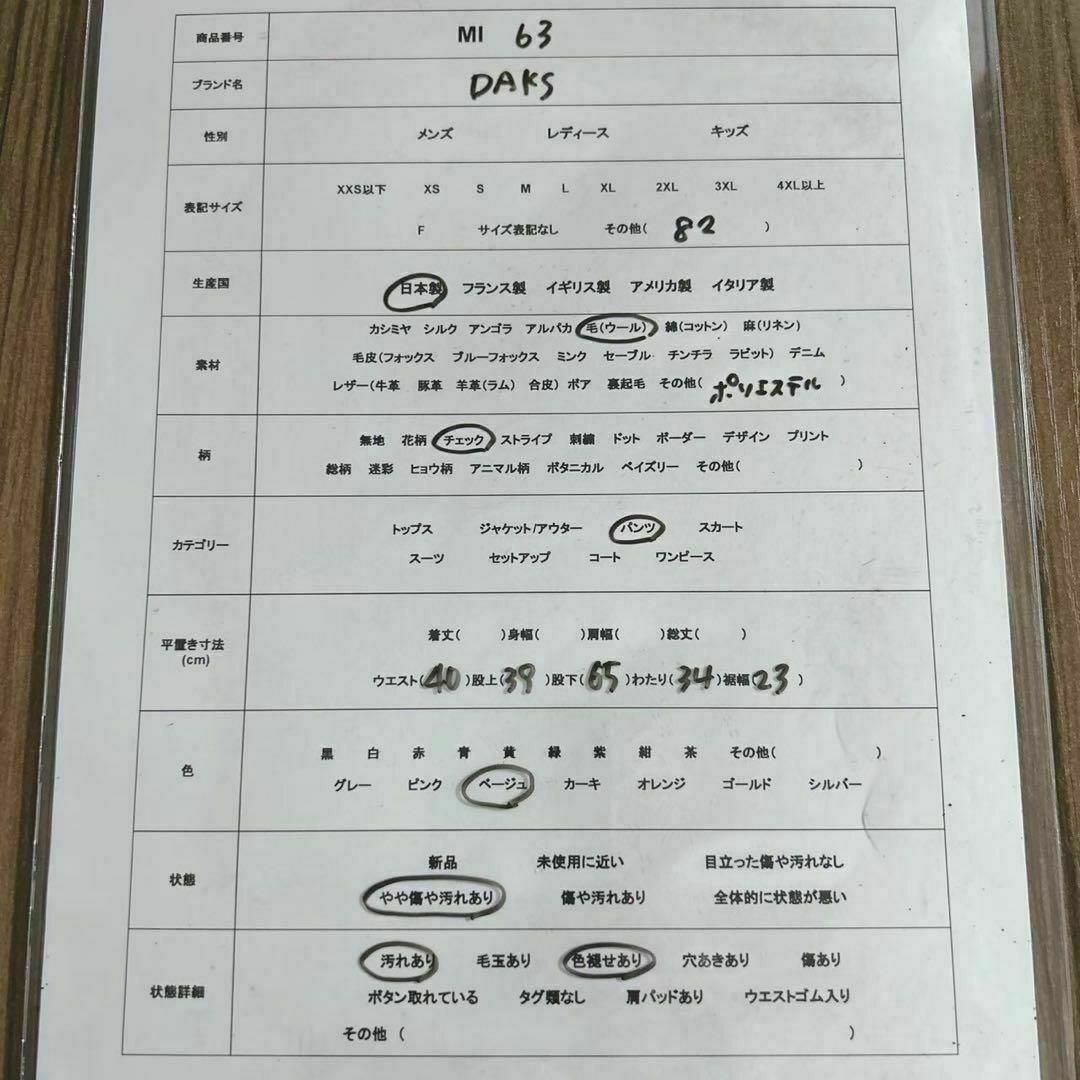 商品番号 MI 63
ブランド名 DAKS
性別 メンズ レディース キッズ
表記サイズ
XXS以下 XS S M L XL 2XL 3XL 4XL以上
F サイズ表記なし その他( 82 )
生産国 日本製 フランス製 イギリス製 アメリカ製 イタリア製
素材
カシミヤ シルク アンゴラ アルパカ 毛(ウール) 綿(コットン) 麻(リネン)
毛皮(フォックス ブルーフォックス ミンク セーブル チンチラ ラビット) デニム
レザー(牛革 豚革 羊革(ラム) 合皮) ボア 裏起毛 その他( ポリエステル )
柄
無地 花柄 チェック ストライプ 刺繍 ドット ボーダー デザイン プリント
総柄 迷彩 ヒョウ柄 アニマル柄 ボタニカル ペイズリー その他( )
カテゴリー
トップス ジャケット/アウター パンツ スカート
スーツ セットアップ コート ワンピース
平置き寸法
(cm)
着丈( )身幅( )肩幅( )総丈( )
ウエスト(40)股上(39)股下(65)わたり(34)裾幅23)
色
黒 白 赤 青 黄 緑 紫 紺 茶 その他( )
グレー ピンク ベージュ カーキ オレンジ ゴールド シルバー
状態
新品 未使用に近い 目立った傷や汚れなし
やや傷や汚れあり 傷や汚れあり 全体的に状態が悪い
状態詳細
汚れあり 毛玉あり 色褪せあり 穴あきあり 傷あり
ボタン取れている タグ類なし 肩パッドあり ウエストゴム入り
その他 ( )